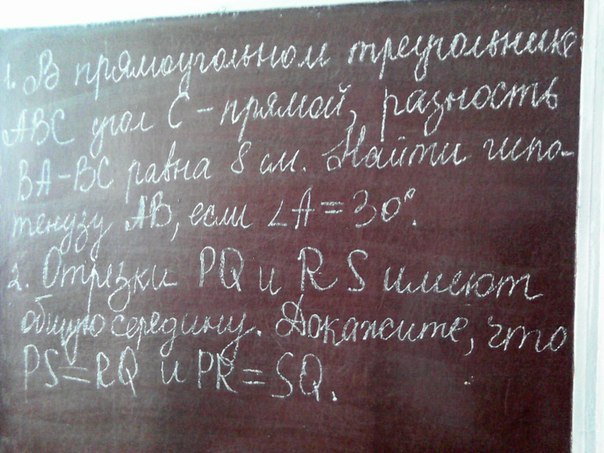 1. В прямоугольном треугольнике
ABC угол C – прямой, разность
BA–BC равна 8 см. Найти гипо-
тенузу AB, если ∠A = 30°.
2. Отрезки PQ и RS имеют
общую середину. Докажите, что
PS = RQ и PR = SQ.